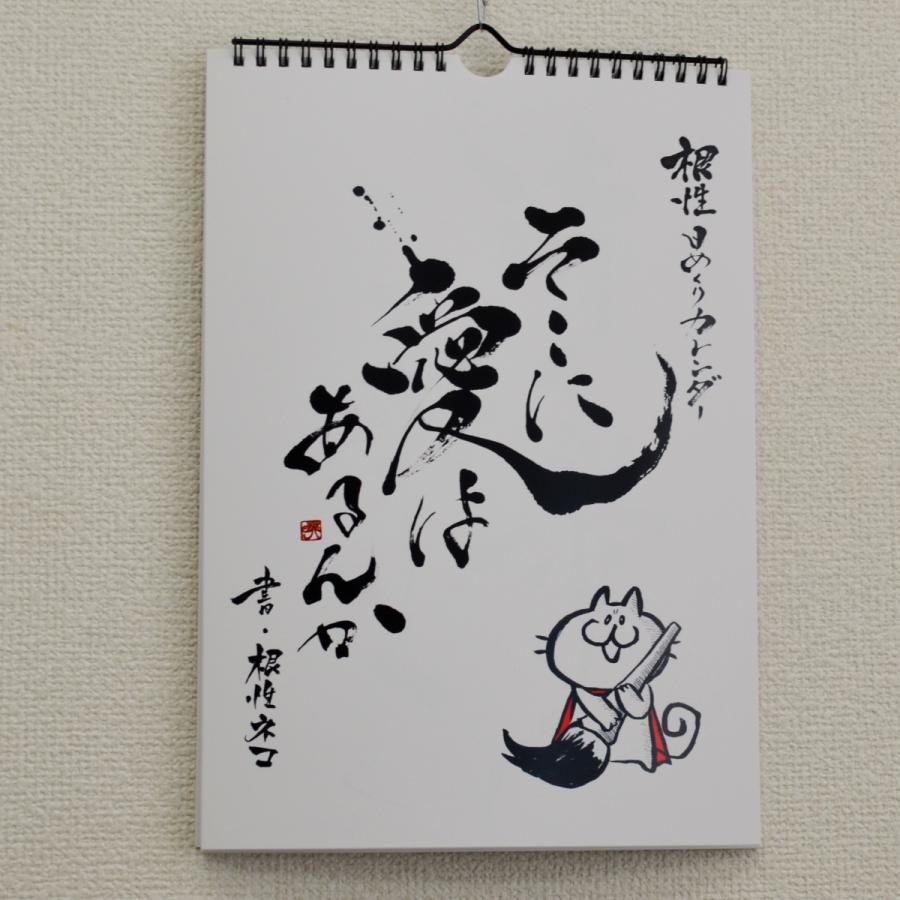 根性日めくりカレンダー
そこに
愛は
あるんか
書・根性ネコ